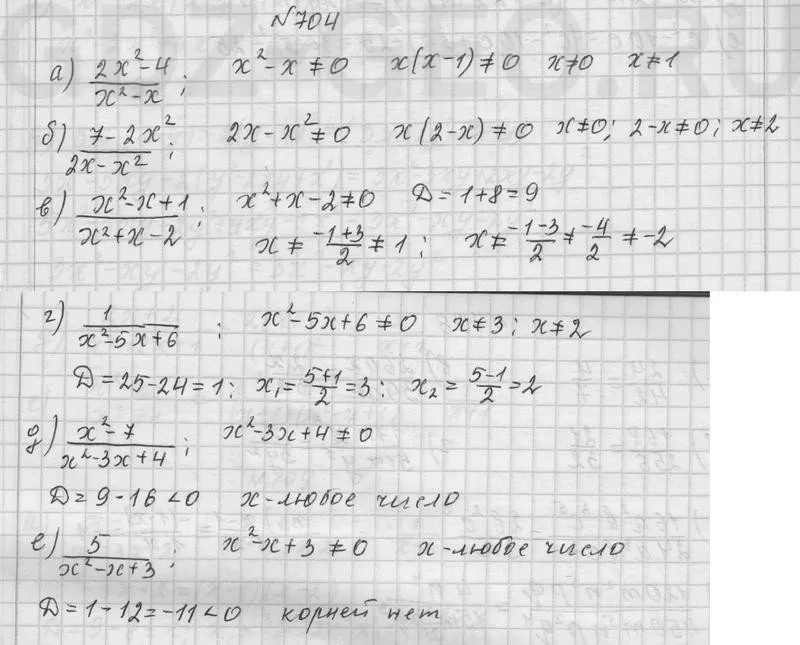 №704
а) (2x²-4)/(x²-x); x²-x≠0 x(x-1)≠0 x≠0 x≠1
б) (7-2x²)/(2x-x²); 2x-x²≠0 x(2-x)≠0 x≠0; 2-x≠0; x≠2
в) (x²-x+1)/(x²+x-2); x²+x-2≠0 D=1+8=9
x≠(-1+3)/2≠1; x≠(-1-3)/2≠(-4)/2≠-2
г) 1/(x²-5x+6); x²-5x+6≠0 x≠3; x≠2
D=25-24=1; x₁=(5+1)/2=3; x₂=(5-1)/2=2
д) (x²-7)/(x²-3x+4); x²-3x+4≠0
D=9-16<0 x-любое число
е) 5/(x²-x+3); x²-x+3≠0 x-любое число
D=1-12=-11<0 корней нет